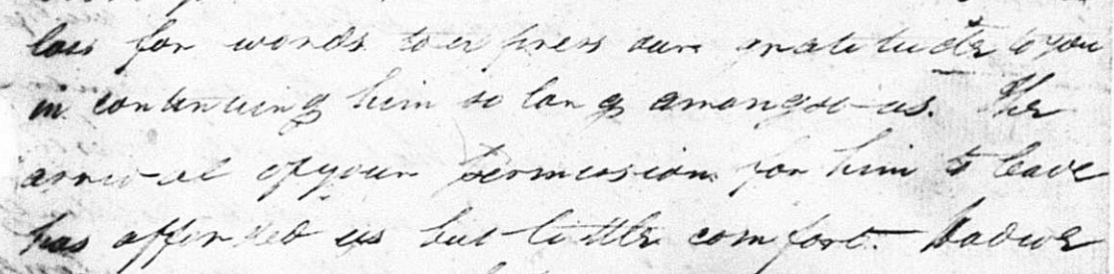 loss for words to express our gratitude to you
in continuing him so long amongst us. The
arrival of your permission for him to leave
has afforded us but little comfort. Had we